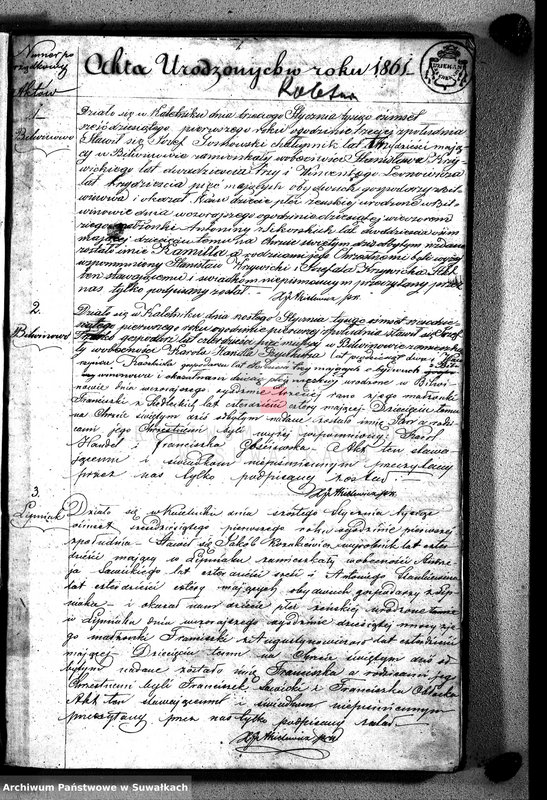 Numer po
rządkowy
Aktów
Akta Urodzonych w roku 1861
1.
Bilwinowo
Działo się w Kaletniku dnia trzeciego Stycznia tysiąc ośmset
sześćdziesiątego pierwszego roku o godzinie trzeciej z południa
Stawił się Józef chałupnik lat trzydzieści mają-
cy w Bilwinowie zamieszkały w obecności Stanisława Krzy-
wickiego lat dwadzieścia trzy i Wincentego
lat trzydzieścia pięć mających obydwóch gospodarzy z Bil-
winowa i okazał Nam dziecię płci żeńskiej urodzone w Bil-
winowie dnia wczorajszego o godzinie dziesiątej wieczorem
z jego małżonki Antoniny z Sikorskich lat dwadzieścia ośm
mającej dziecięciu temu na Chrzcie świętym dziś odbytym nadane
zostało imie Kamilla a rodzicami jego Chrzestnemi byli wyżej
wspomniony Stanisław Krzywicki i Krzywicka Akt
ten stawającemu i świadkom niepismiennym przeczytany przez
nas tylko podpisany został
2.
Bilwinowo
Działo się w Kaletniku dnia szóstego Stycznia tysiąc ośmset sześćdzie-
siątego pierwszego roku o godzinie pierwszej z południa stawił się Józef
gospodarz lat czterdzieści pięć mający w Bilwinowie zamieszka-
ły w obecności Karola Handla lat pięćdziesiąt dwa i
gospodarza lat trzy mających obydwóch gospo
Bilwinowa i okazał nam dziecię płci męskiej urodzone w Bilwi-
nowie dnia wczorajszego o godzinie trzeciej rano z jego małżonki
Franciszki z lat czterdzieści cztery mającej. Dziecięciu temu
na Chrzcie świętym dziś odbytym nadane zostało imię Jan a rodzi-
cami jego Chrzestnemi byli wyżej wspomniony Karol
Handel i Franciszka Akt ten stawa-
jącemu i świadkom niepismiennym przeczytany
przez nas tylko podpisany został
3.
Lipniak
Działo się w Kaletniku dnia szóstego Stycznia tysiąc
ośmset sześćdziesiątego pierwszego roku o godzinie pierwszej
z południa Stawił się Jakób wyrobnik lat czter-
dzieści mający w Lipniaku zamieszkały w obecności Andrze-
ja Sawickiego lat czterdzieści sześć i Antoniego
lat czterdzieści cztery mających obydwóch gospodarzy z Lip-
niaka i okazał nam dziecię płci żeńskiej urodzone
w Lipniaku dnia wczorajszego o godzinie dziesiątej w nocy z je-
go małżonki Franciszki z Augustynowiczów lat czterdzieści
mającej Dziecięciu temu na Chrzcie świętym dziś od-
bytym nadane zostało imie Franciszka a rodzicami jego
Chrzestnemi byli Franciszek Sawicki i Franciszka
Akt ten stawającemu i świadkom niepismiennym
przeczytany przez nas tylko podpisany został
Archiwum Państwowe w Suwałkach